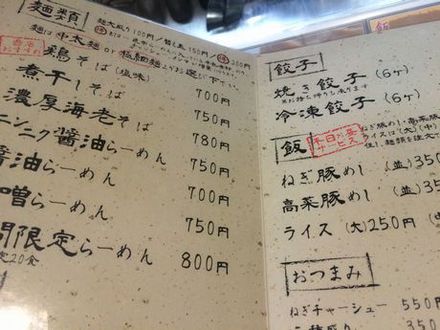 麺類
麺大盛り100円／替え玉150円
麺は中太麺or極細麺よりお選び下さい。
鶏そば(塩味) 700円
煮干しそば 750円
濃厚海老そば 780円
ニンニク醤油らーめん 750円
醤油らーめん 700円
味噌らーめん 750円
間限定らーめん 800円
定20食
餃子
焼き餃子(6ヶ)
冷凍餃子(6ヶ)
飯
平日お昼サービス
ねぎ豚めし(並)350
高菜豚めし(並)35
ライス(大)250円
おつまみ
ねぎチャーシュー 550円
350